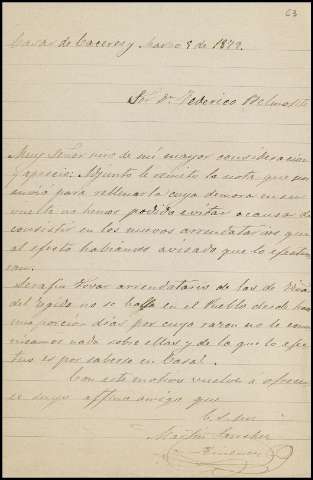 63
Casar de Caceres y Marzo 8 de 1879.
Sor Dn. Federico Belmonte
Muy Señor mio de mi mayor consideracion
y aprecio: Adjunto le remito la nota que me
envió para rellenarla cuya demora en su
vuelta no hemos podido evitar a causa de
consistir en los nuevos arrendatarios que
al efecto habiamos avisado que lo efectua
ran.
Serafin Tovar arrendatario de las de
del Egido no se halla en el Pueblo desde hace
una porcion dias por cuya razon no le comu
nicamos nada sobre ellas y de la que lo efec
tue es por saberse en Casa.
Con este motivo vuelve a ofrecer
se suyo affmo. amigo que
b. s. m.
Martin Sanchez